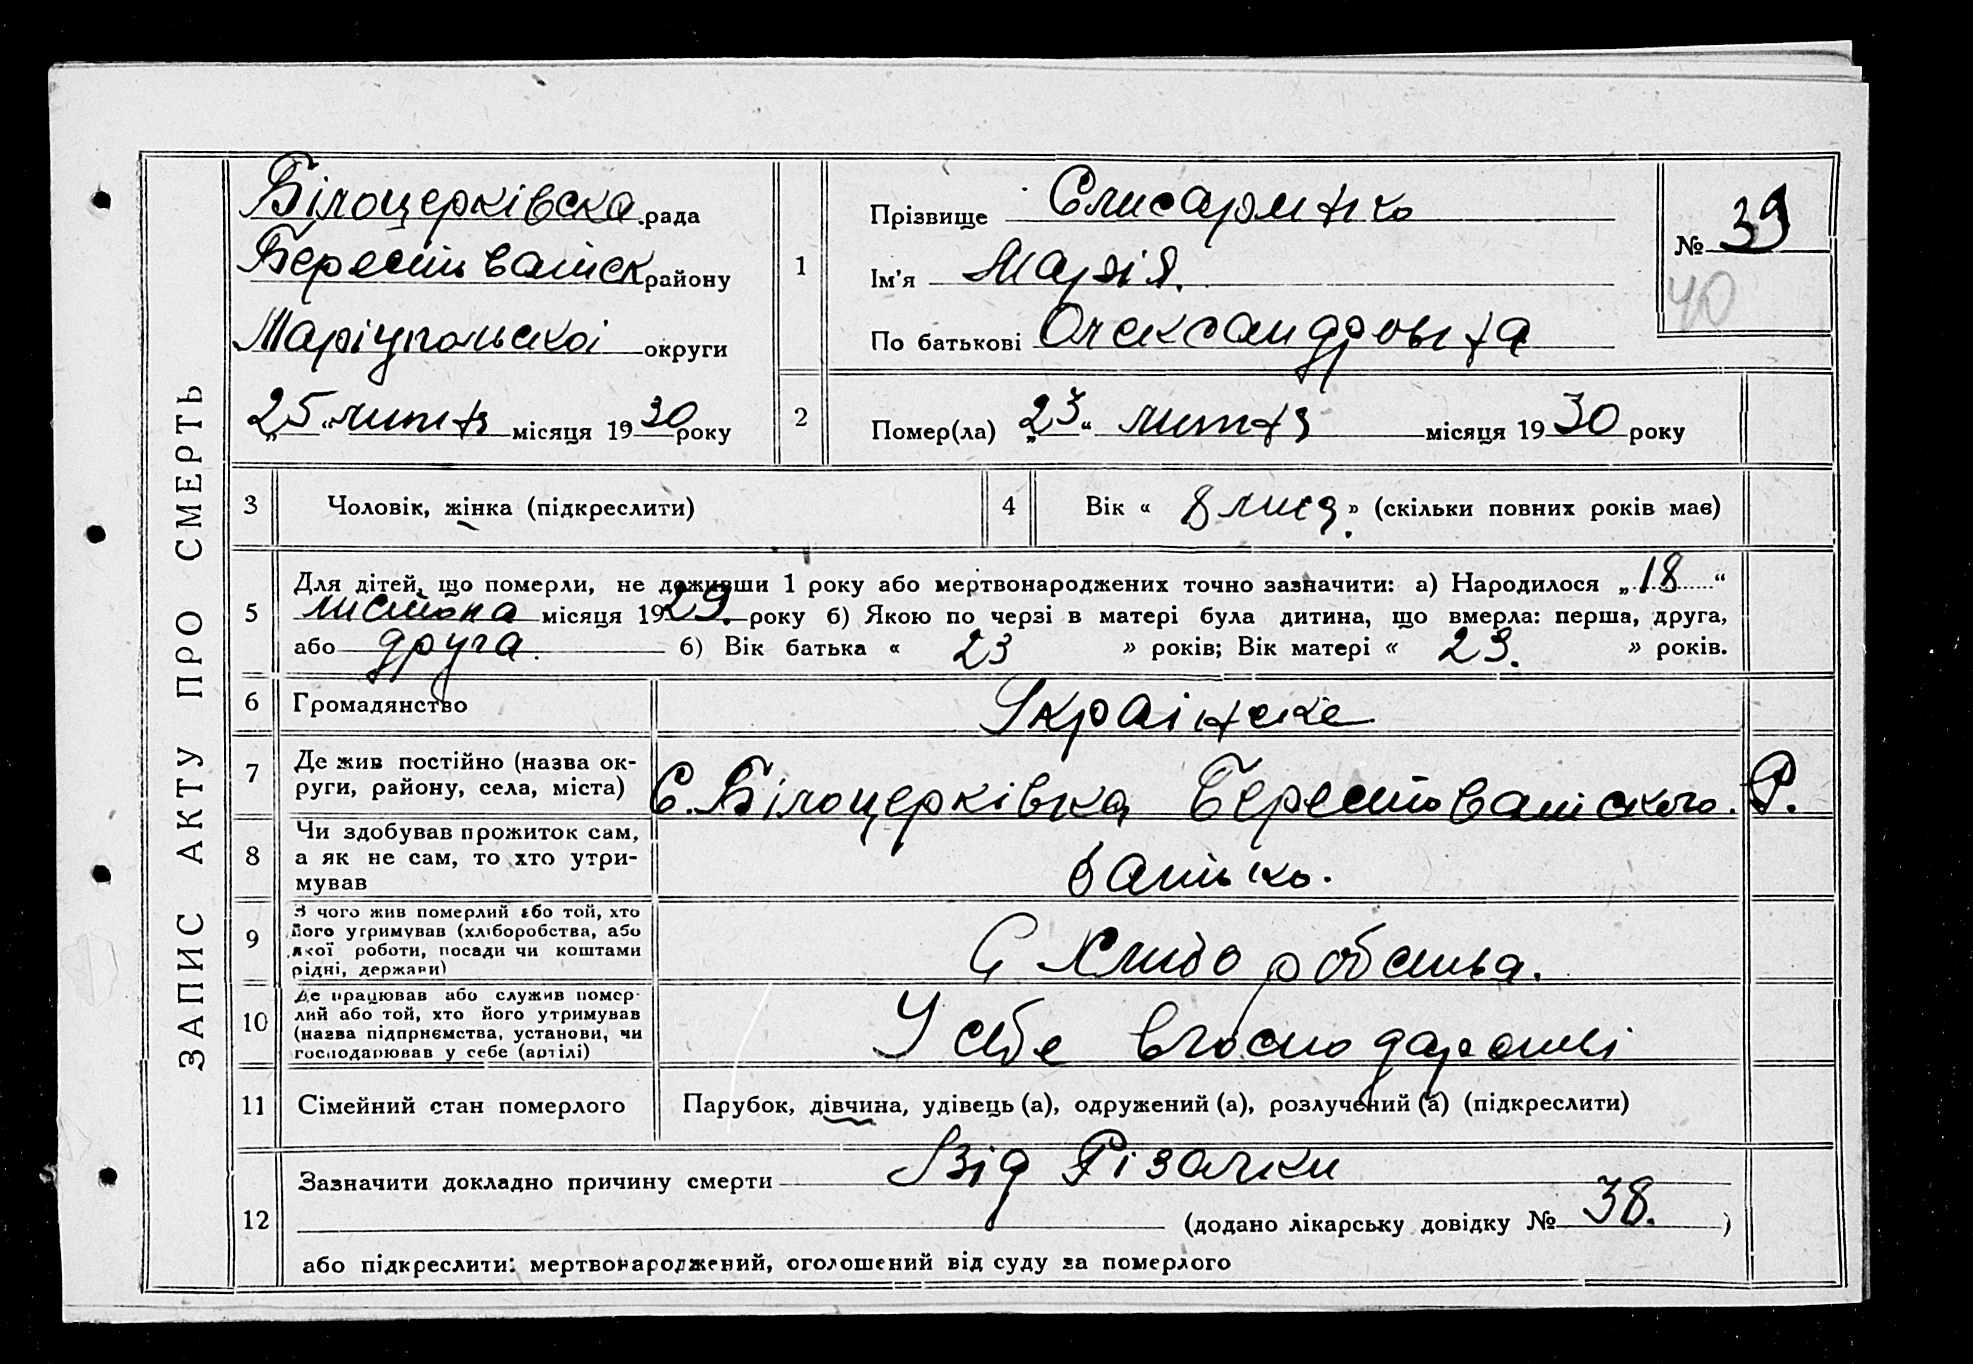 ЗАПИС АКТУ ПРО СМЕРТЬ
Білоцерківска рада
Берестоватск району
Маріупольскоі округи
„25“ лютня місяця 1930 року
1
Прізвище
Ім'я Марія.
По батькові Олександровна
№ 39
40
2
Помер(ла) „23“ лютня місяця 1930 року
3 Чоловік, жінка (підкреслити)
4 Вік « 8 » (скільки повних років має)
5
Для дітей, що померли, не доживши 1 року або мертвонароджених точно зазначити: а) Народилося „18“
листопа місяця 1929. року б) Якою по черзі в матері була дитина, що вмерла: перша, друга,
або друга. б) Вік батька « 23 » років; Вік матері « 23. » років.
6 Громадянство Українске
7
Де жив постійно (назва ок-
руги, району, села, міста)
С. Білоцерківка Берестоватского. Р.
8
Чи здобував прожиток сам,
а як не сам, то хто утри-
мував
батько.
9
З чого жив померлий або той, хто
його утримував (хліборобства, або
якої роботи, посади чи коштами
рідні, держави)
С Хлиборобства.
10
Де працював або служив помер-
лий або той, хто його утримував
(назва підприємства, установи, чи
господарював у себе (артілі)
У себе вгосподарстві
11 Сімейний стан померлого
Парубок, дівчина, удівець (а), одружений (а), розлучений (а) (підкреслити)
12
Зазначити докладно причину смерти Від Різачки
(додано лікарську довідку № 38. )
або підкреслити: мертвонароджений, оголошений від суду за померлого